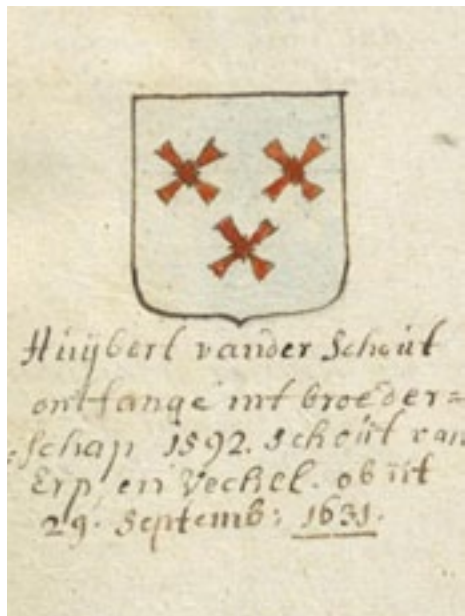 Huijbert vander Schoút
ontfange int broeder=
schap 1592. schoút van
Erp, en Vechel. obiit
29. Septemb: 1631.